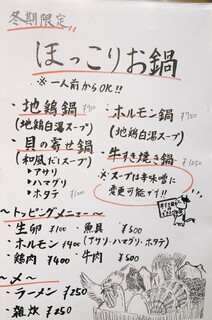 冬期限定
ほっこりお鍋
※一人前からOK!!
・地鶏鍋
(地鶏白湯スープ)
・ホルモン鍋 ¥750
(地鶏白湯スープ)
・貝の寄せ鍋
(和風だしスープ)
▸アサリ
▸ハマグリ
▸ホタテ
・牛すき焼き鍋 ¥1250
※スープは辛味噌に
変更可能です!!
～トッピングメニュー～
・生卵 ¥100
・魚貝 ¥500
・ホルモン ¥400
(アサリ・ハマグリ・ホタテ)
・鶏肉 ¥400
・牛肉 ¥500
～〆～
・ラーメン ¥250
・雑炊 ¥250